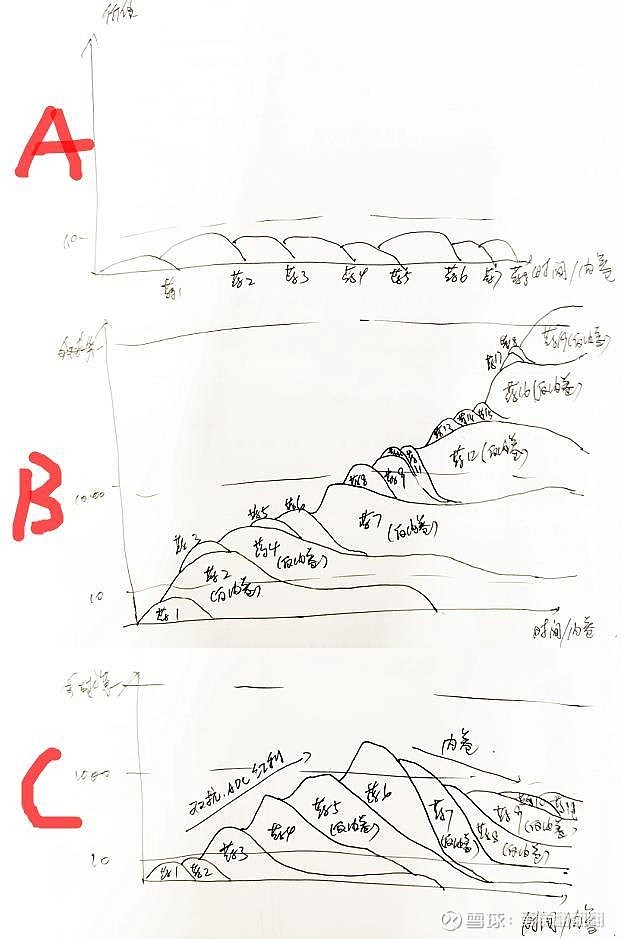 价值
A
10
药1
药2
药3
药4
药5
药6
药7
药8
时间/内卷
B
1000
10
药1
药2
(反内卷)
药3
药4
(反内卷)
药5
药6
药7
(反内卷)
药8
药9
药11
药12(反内卷)
药13
药14
药15
药16(反内卷)
药17
药18
药19(反内卷)
时间/内卷
C
1000
10
双抗、ADC红利
内卷
药1
药2
药3
药4
药5
(反内卷)
药6
药7
(反内卷)
药8
药9
(反内卷)
药10
药11
(反内卷)
时间/内卷
雪球：